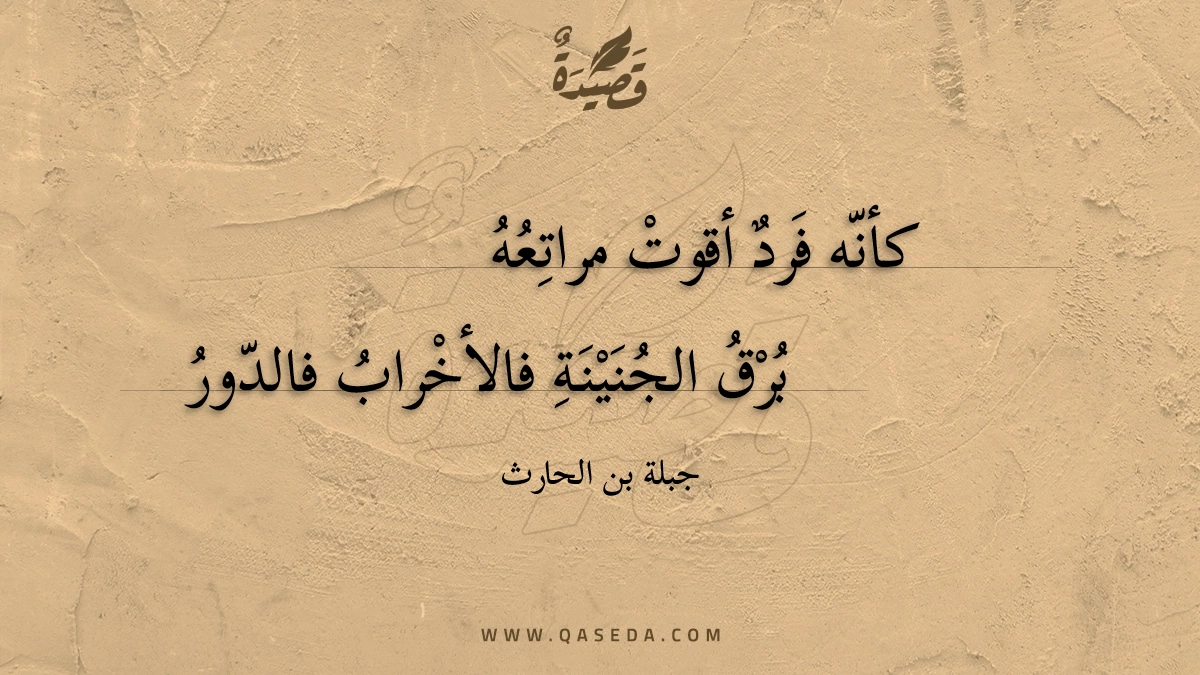 قَصِيْدَةٌ
كأنّه فَردٌ أقوتْ مراتِعُهُ
بُرْقُ الجُنَيْنَةِ فالأخْرابُ فالدّورُ
جبلة بن الحارث
WWW.QASEDA.COM